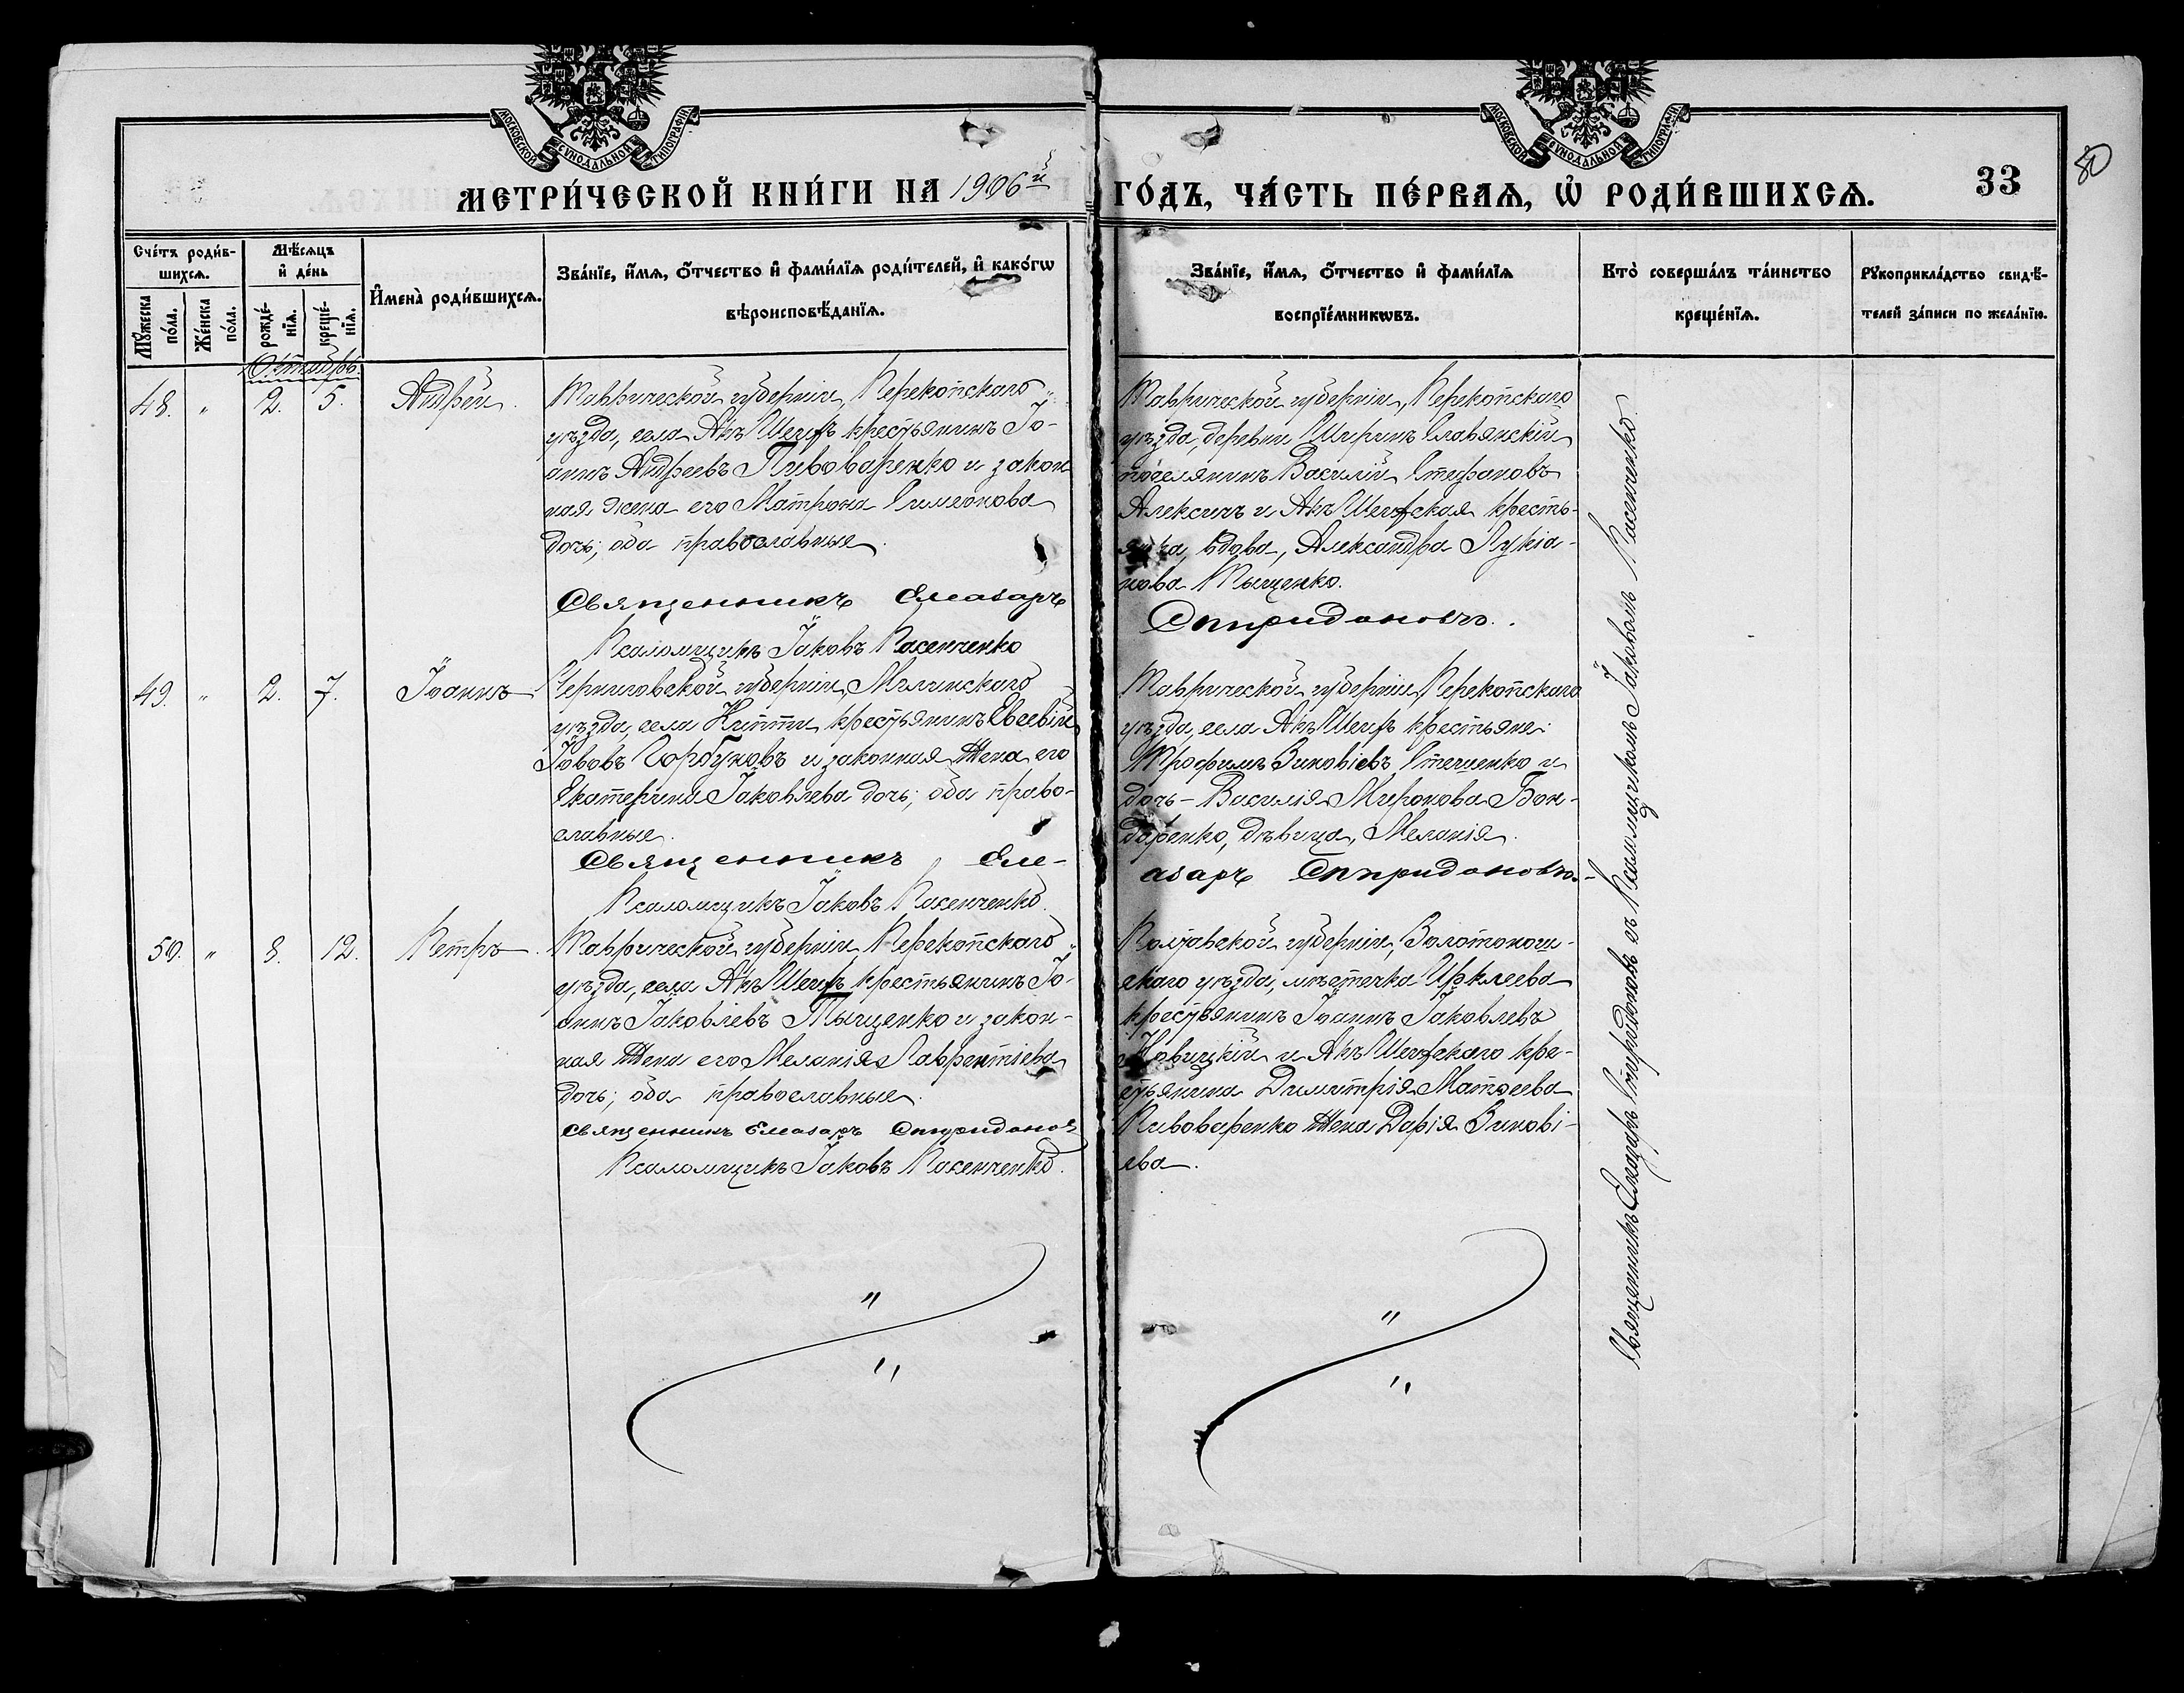 МОСКОВСКОЙ СУНОДАЛЬНОЙ ТИПОГРАФІИ
МОСКОВСКОЙ СУНОДАЛЬНОЙ ТИПОГРАФІИ
МЕТРИ́ЧЕСКОЙ КНИ́ГИ НА 1906й ГО́ДЪ, ЧА́СТЬ ПЕ́РВАѦ, Ѡ҆ РОДИ́ВШИХСѦ. 33
50
Сче́тъ роди́в-
шихсѧ.
Мꙋ́жеска
по́ла.
Же́нска
по́ла.
Мѣ́сѧцъ
и҆ де́нь
рожде́-
нїѧ.
креще́-
нїѧ.
И҆мена̀ роди́вшихсѧ.
Зва́нїе, и҆́мѧ, ѻ҆́тчество и҆ фами́лїѧ роди́телей, и҆ како́гѡ
вѣроисповѣ́данїѧ.
Зва́нїе, и҆́мѧ, ѻ҆́тчество и҆ фами́лїѧ
воспрїе́мникѡвъ.
Кто̀ соверша́лъ та́инство
креще́нїѧ.
Рꙋкоприкла́дство свидѣ́-
телей за́писи по жела́нїю.
Октябрь.
48. " 2. 5. Андрей.
Таврической губерніи, Перекопскаго
уѣзда, села Акъ Шеихъ крестьянинъ Іо-
аннъ Андреевъ Пивоваренко и закон
ная жена его Матрона Симеонова
дочь; оба православные.
Священникъ Елеазаръ
Псаломщикъ Іаковъ Пасенченко
Таврической губерніи, Перекопскаго
уѣзда, деревни Ширинъ Славянскій
поселянинъ Василій Стефановъ
Алексинъ и Акъ Шеихская кресть-
янка, вдова, Александра Лукіа-
нова Тыщенко.
Спиридоновъ.
49. " 2. 7. Іоаннъ.
Черниговской губерніи, Мглинскаго
уѣзда, села крестьянинъ Евсевій
Іововъ Горбуновъ и законная жена его
Екатерина Іаковлева дочь; оба право-
славные.
Священникъ Еле-
Псаломщикъ Іаковъ Пасенченко.
Таврической губерніи, Перекопскаго
уѣзда, села Акъ Шеихъ крестьяне:
Трофимъ Зиновіевъ Стеценко и
дочь - Василія Миронова Бон-
даренко, дѣвица, Меланія.
азаръ Спиридоновъ.
50. " 8. 12. Петръ.
Таврической губерніи, Перекопскаго
уѣзда, села Акъ Шеихъ крестьянинъ Іо-
аннъ Іаковлевъ Тыщенко и закон-
ная жена его Меланія Лаврентіева
дочь; оба православные.
Священникъ Елеазаръ Спиридоновъ
Псаломщикъ Іаковъ Пасенченко.
Полтавской губерніи, Золотонош-
скаго уѣзда, мѣстечка Ирклеева
крестьянинъ Іоаннъ Іаковлевъ
Новицкій и Акъ Шеихскаго кре-
стьянина Димитрія Матѳеева
Пивоваренко жена Дарія Зинові-
ева.
Священникъ Елеазаръ Спиридоновъ съ Псаломщикомъ Іаковомъ Пасенченко.